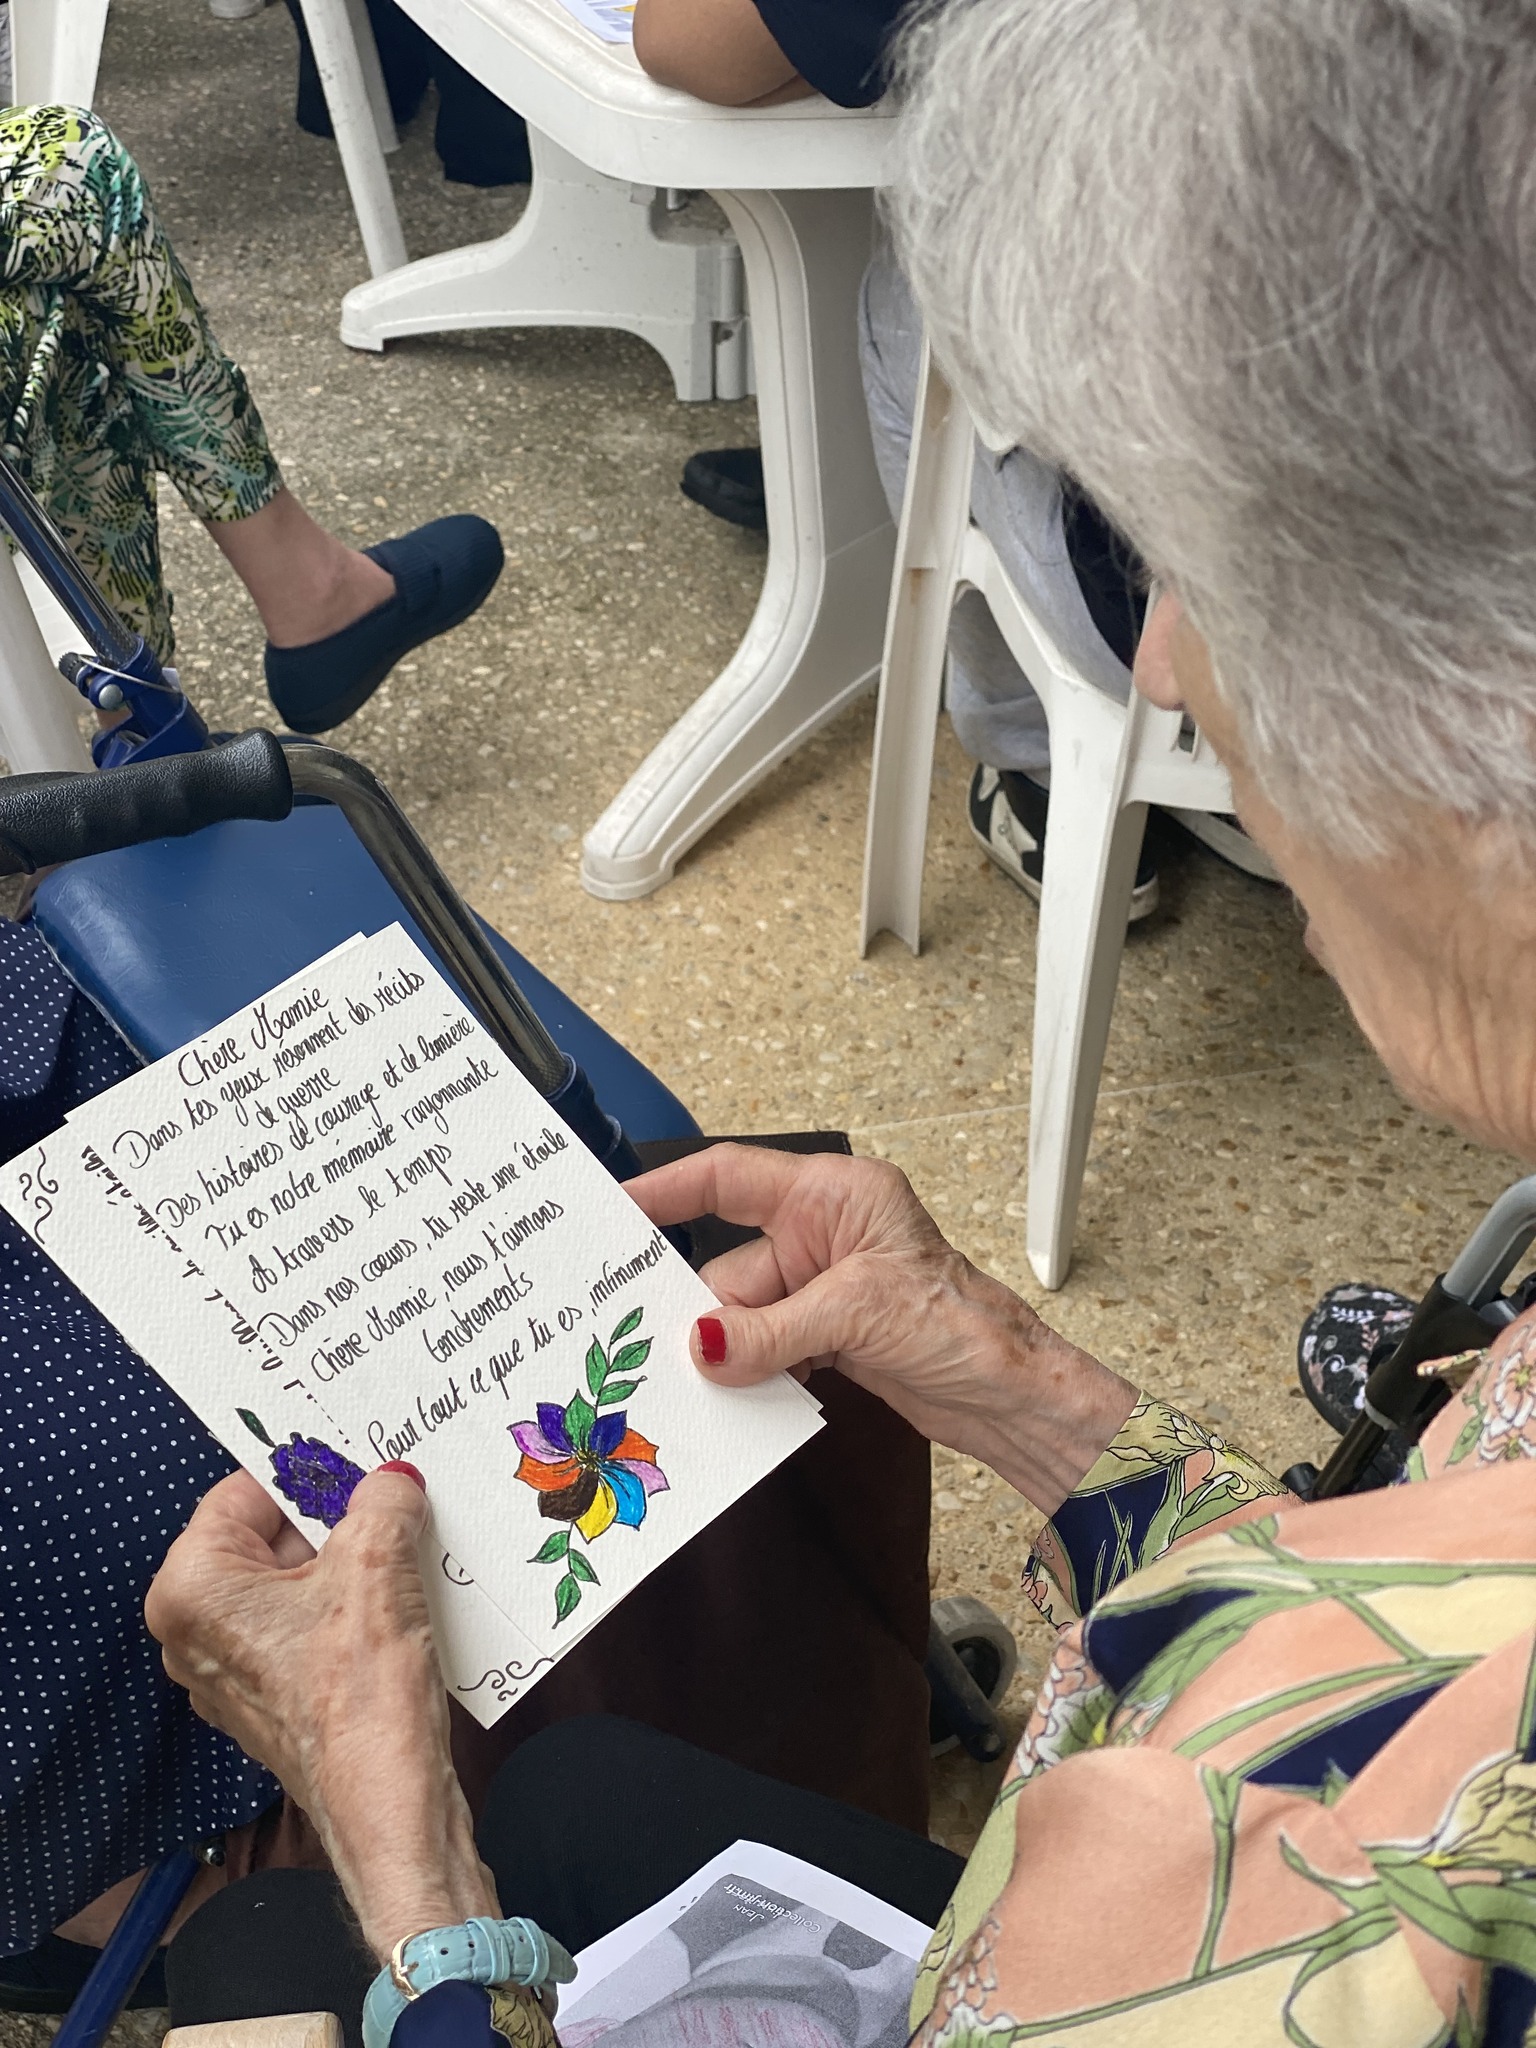 Chère Mamie
Dans tes yeux résonnent des récits
de guerre
Des histoires de courage et de lumière
Tu es notre mémoire rayonnante
A travers le temps
Dans nos cœurs, tu reste une étoile
Chère Mamie, nous t'aimons
tendrements
Pour tout ce que tu es, infiniment
Jean
Collection